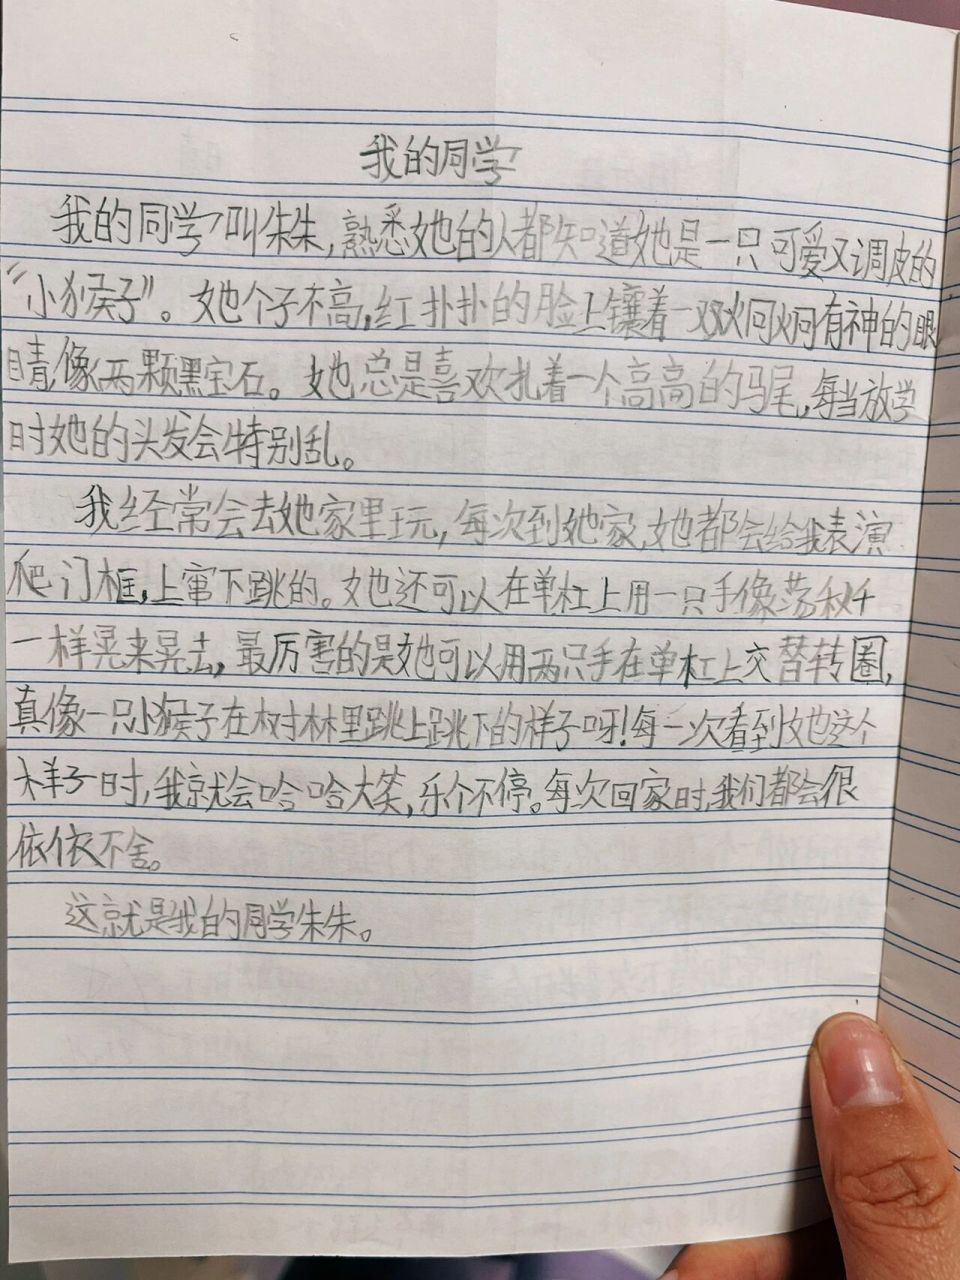 我的同学
我的同学叫朱朱,熟悉她的人都知道她是一只可爱又调皮的
“小猴子”。她个子不高,红扑扑的脸上镶着一双炯炯有神的眼
睛,像两颗黑宝石。她总是喜欢扎着一个高高的马尾,每当放学
时她的头发会特别乱。
我经常会去她家里玩,每次到她家,她都会给我表演
爬门框,上窜下跳的。她还可以在单杠上用一只手像荡秋千
一样晃来晃去,最厉害的是她可以用两只手在单杠上交替转圈,
真像一只小猴子在树林里跳上跳下的样子呀!每一次看到她这个
样子时,我就会哈哈大笑,乐个不停。每次回家时,我们都会很
依依不舍。
这就是我的同学朱朱。